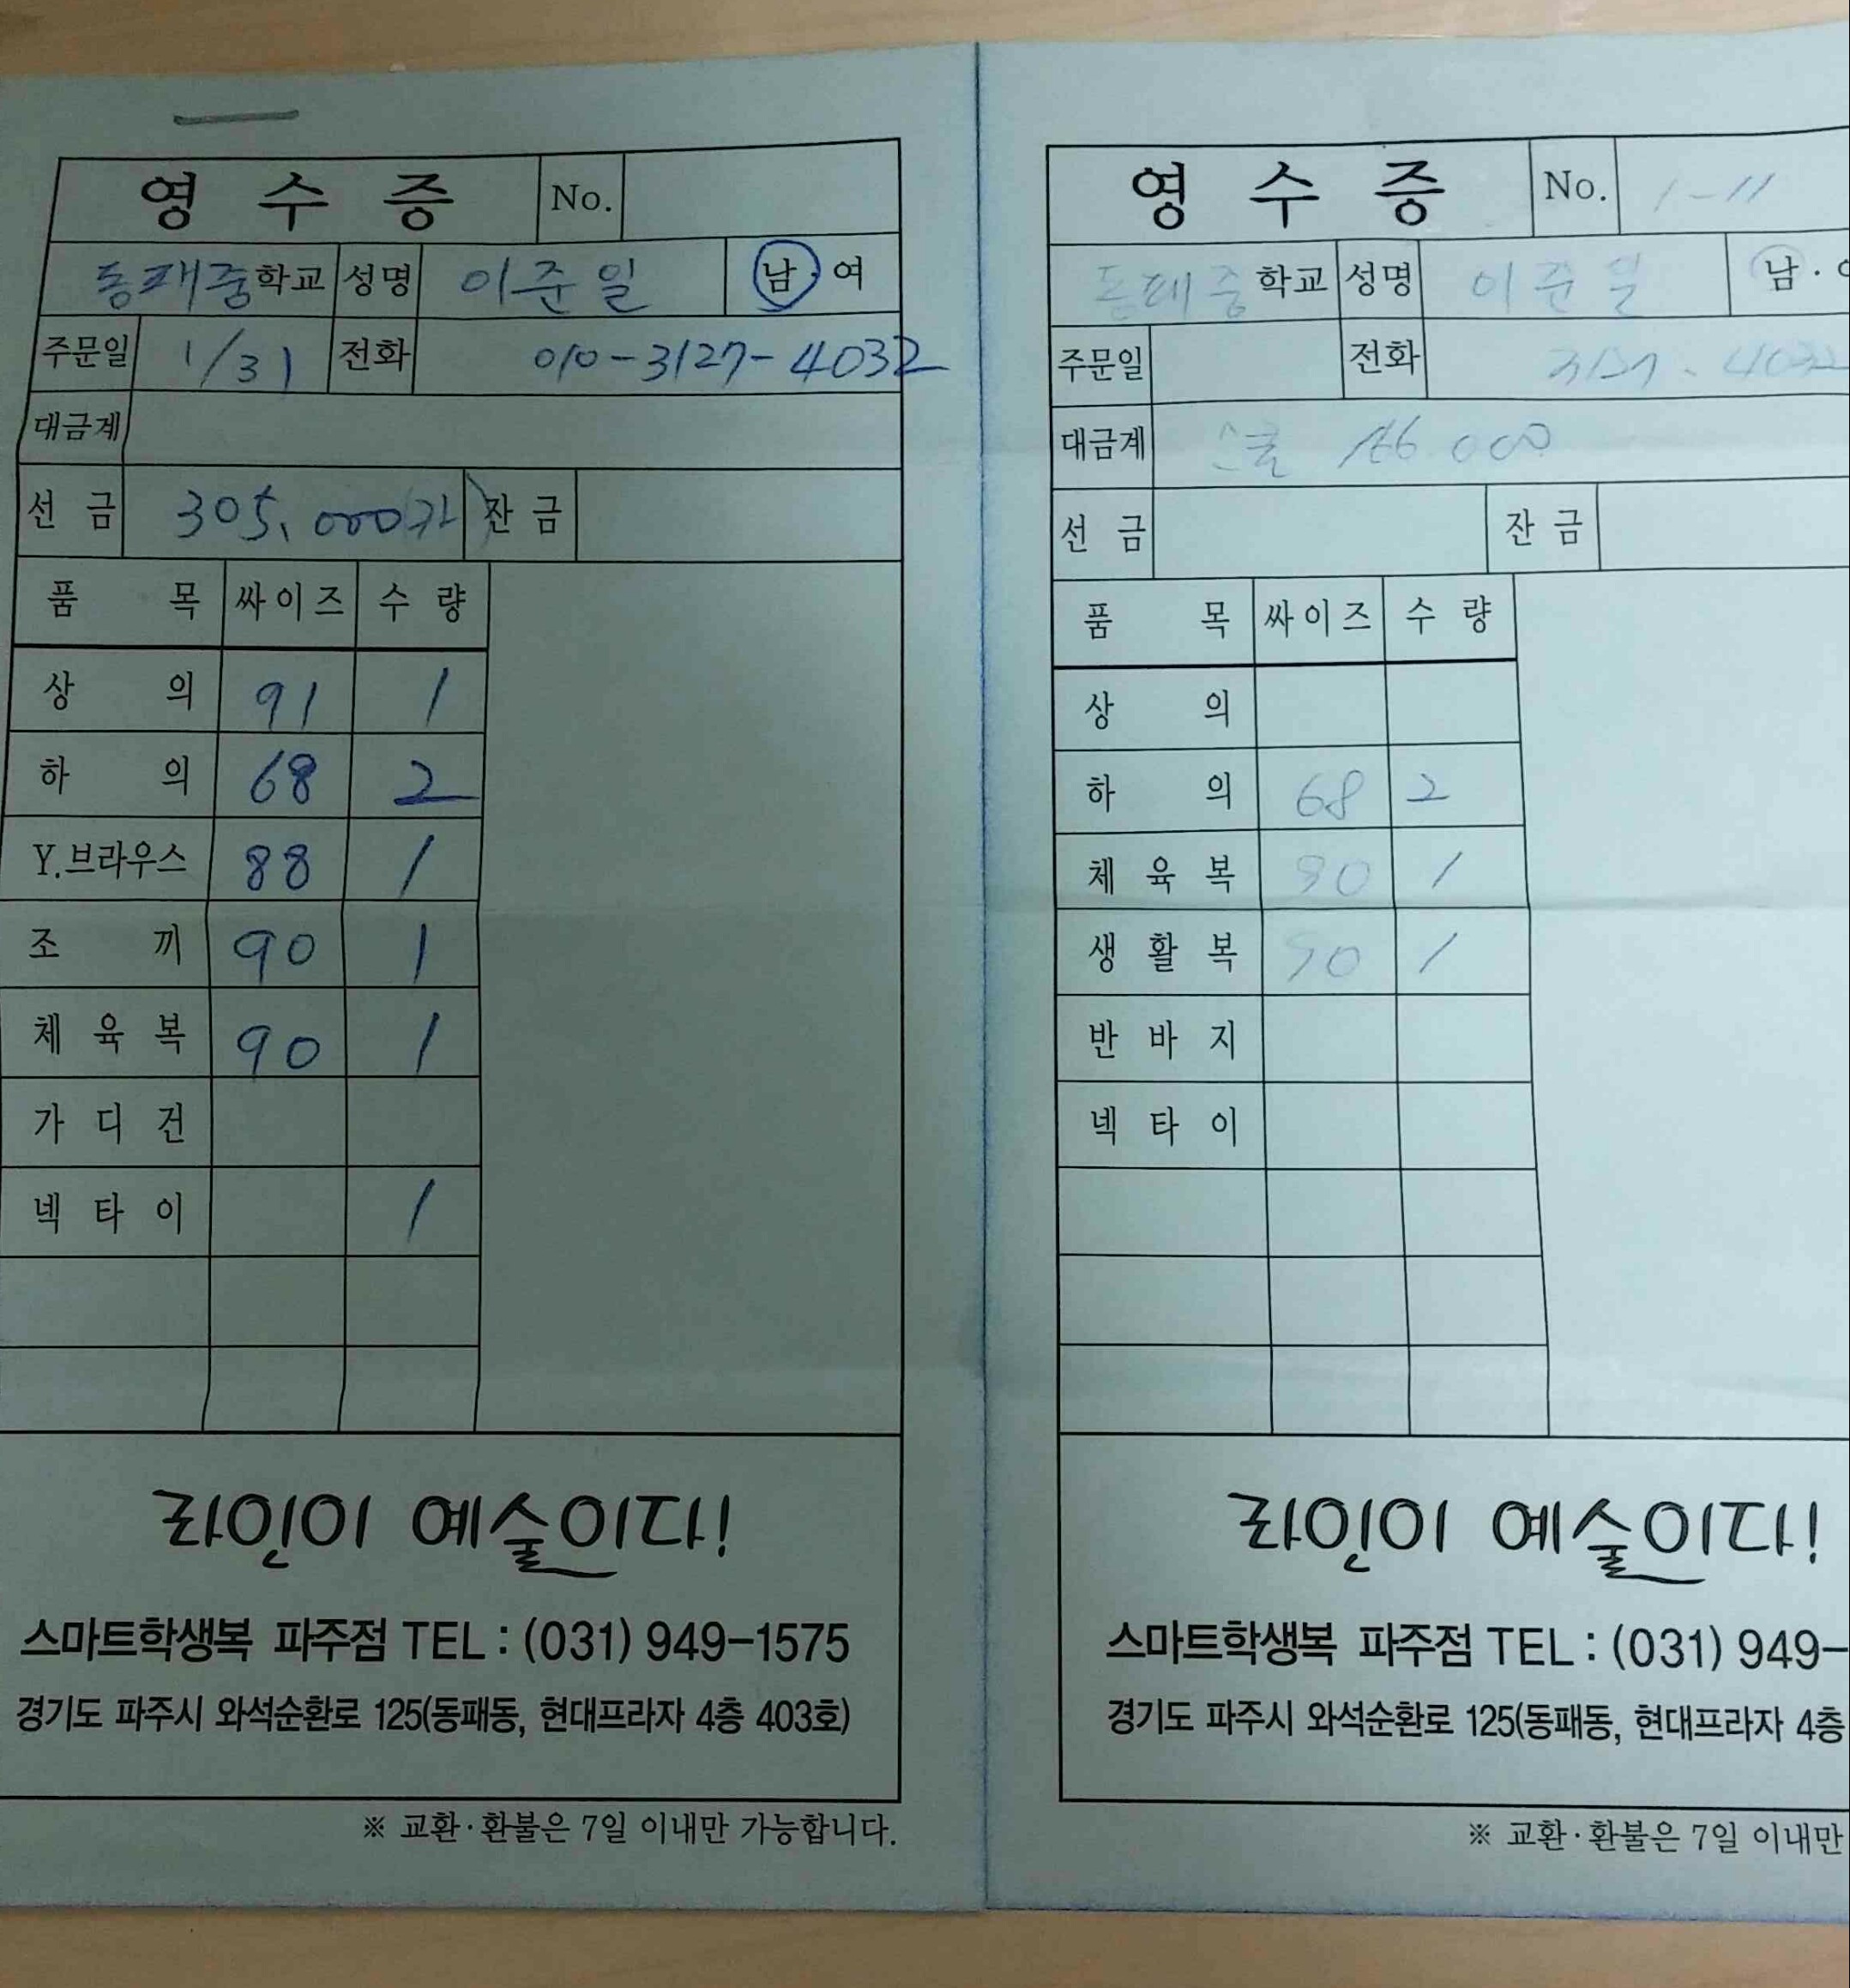 영 수 증 No.
동패중 학교 성명 이준일 남·여
주문일 1/31 전화 010-3127-4032
대금계
선 금 305,000 잔 금
품 목 싸이즈 수 량
상 의 91 1
하 의 68 2
Y.브라우스 88 1
조 끼 90 1
체 육 복 90 1
가 디 건
넥 타 이 1
라인이 예술이다!
스마트학생복 파주점 TEL : (031) 949-1575
경기도 파주시 와석순환로 125(동패동, 현대프라자 4층 403호)
※ 교환·환불은 7일 이내만 가능합니다.
영 수 증 No. 1-11
동패중 학교 성명 이준일 남·
주문일 전화 3127-4032
대금계
선 금 잔 금
품 목 싸이즈 수 량
상 의
하 의 68 2
체 육 복 90 1
생 활 복 90 1
반 바 지
넥 타 이
라인이 예술이다!
스마트학생복 파주점 TEL : (031) 949-
경기도 파주시 와석순환로 125(동패동, 현대프라자 4층
※ 교환·환불은 7일 이내만